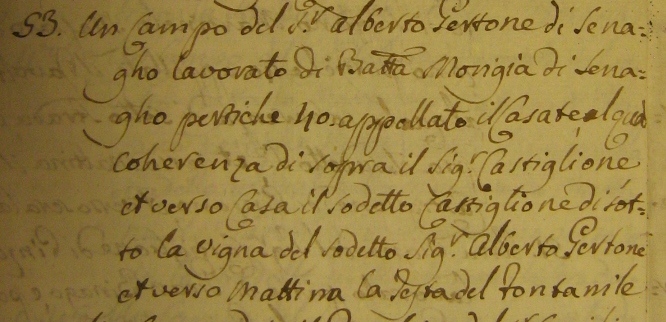 53. Un Campo del S.r Alberto Pertone di Sena=
gho lavorato di Batta Morigia di Sena=
gho pertiche 40. appellato il Casate al qual
coherenza di sopra il Sig.r Castiglione
et verso Casa il sodetto Castiglione di sot=
to la vigna del sodetto Sig.r Alberto Pertone
et verso Mattina la Testa del Fontanile